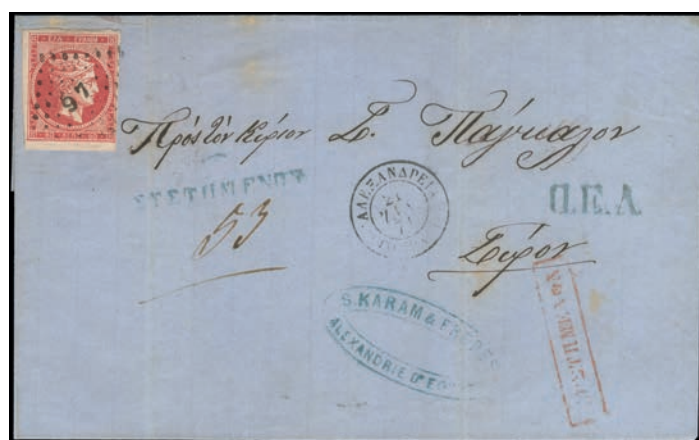 97
Πρὸς τὸν Κύριον Σ. Πάγκαλον
ΣΥΣΤΗΜΕΝΟΝ
Π.Ε.Λ
ΑΛΕΞΑΝΔΡΕΙΑ
53
Σύρον
S. KARAM & FRERES
ALEXANDRIE D'EGYPTE